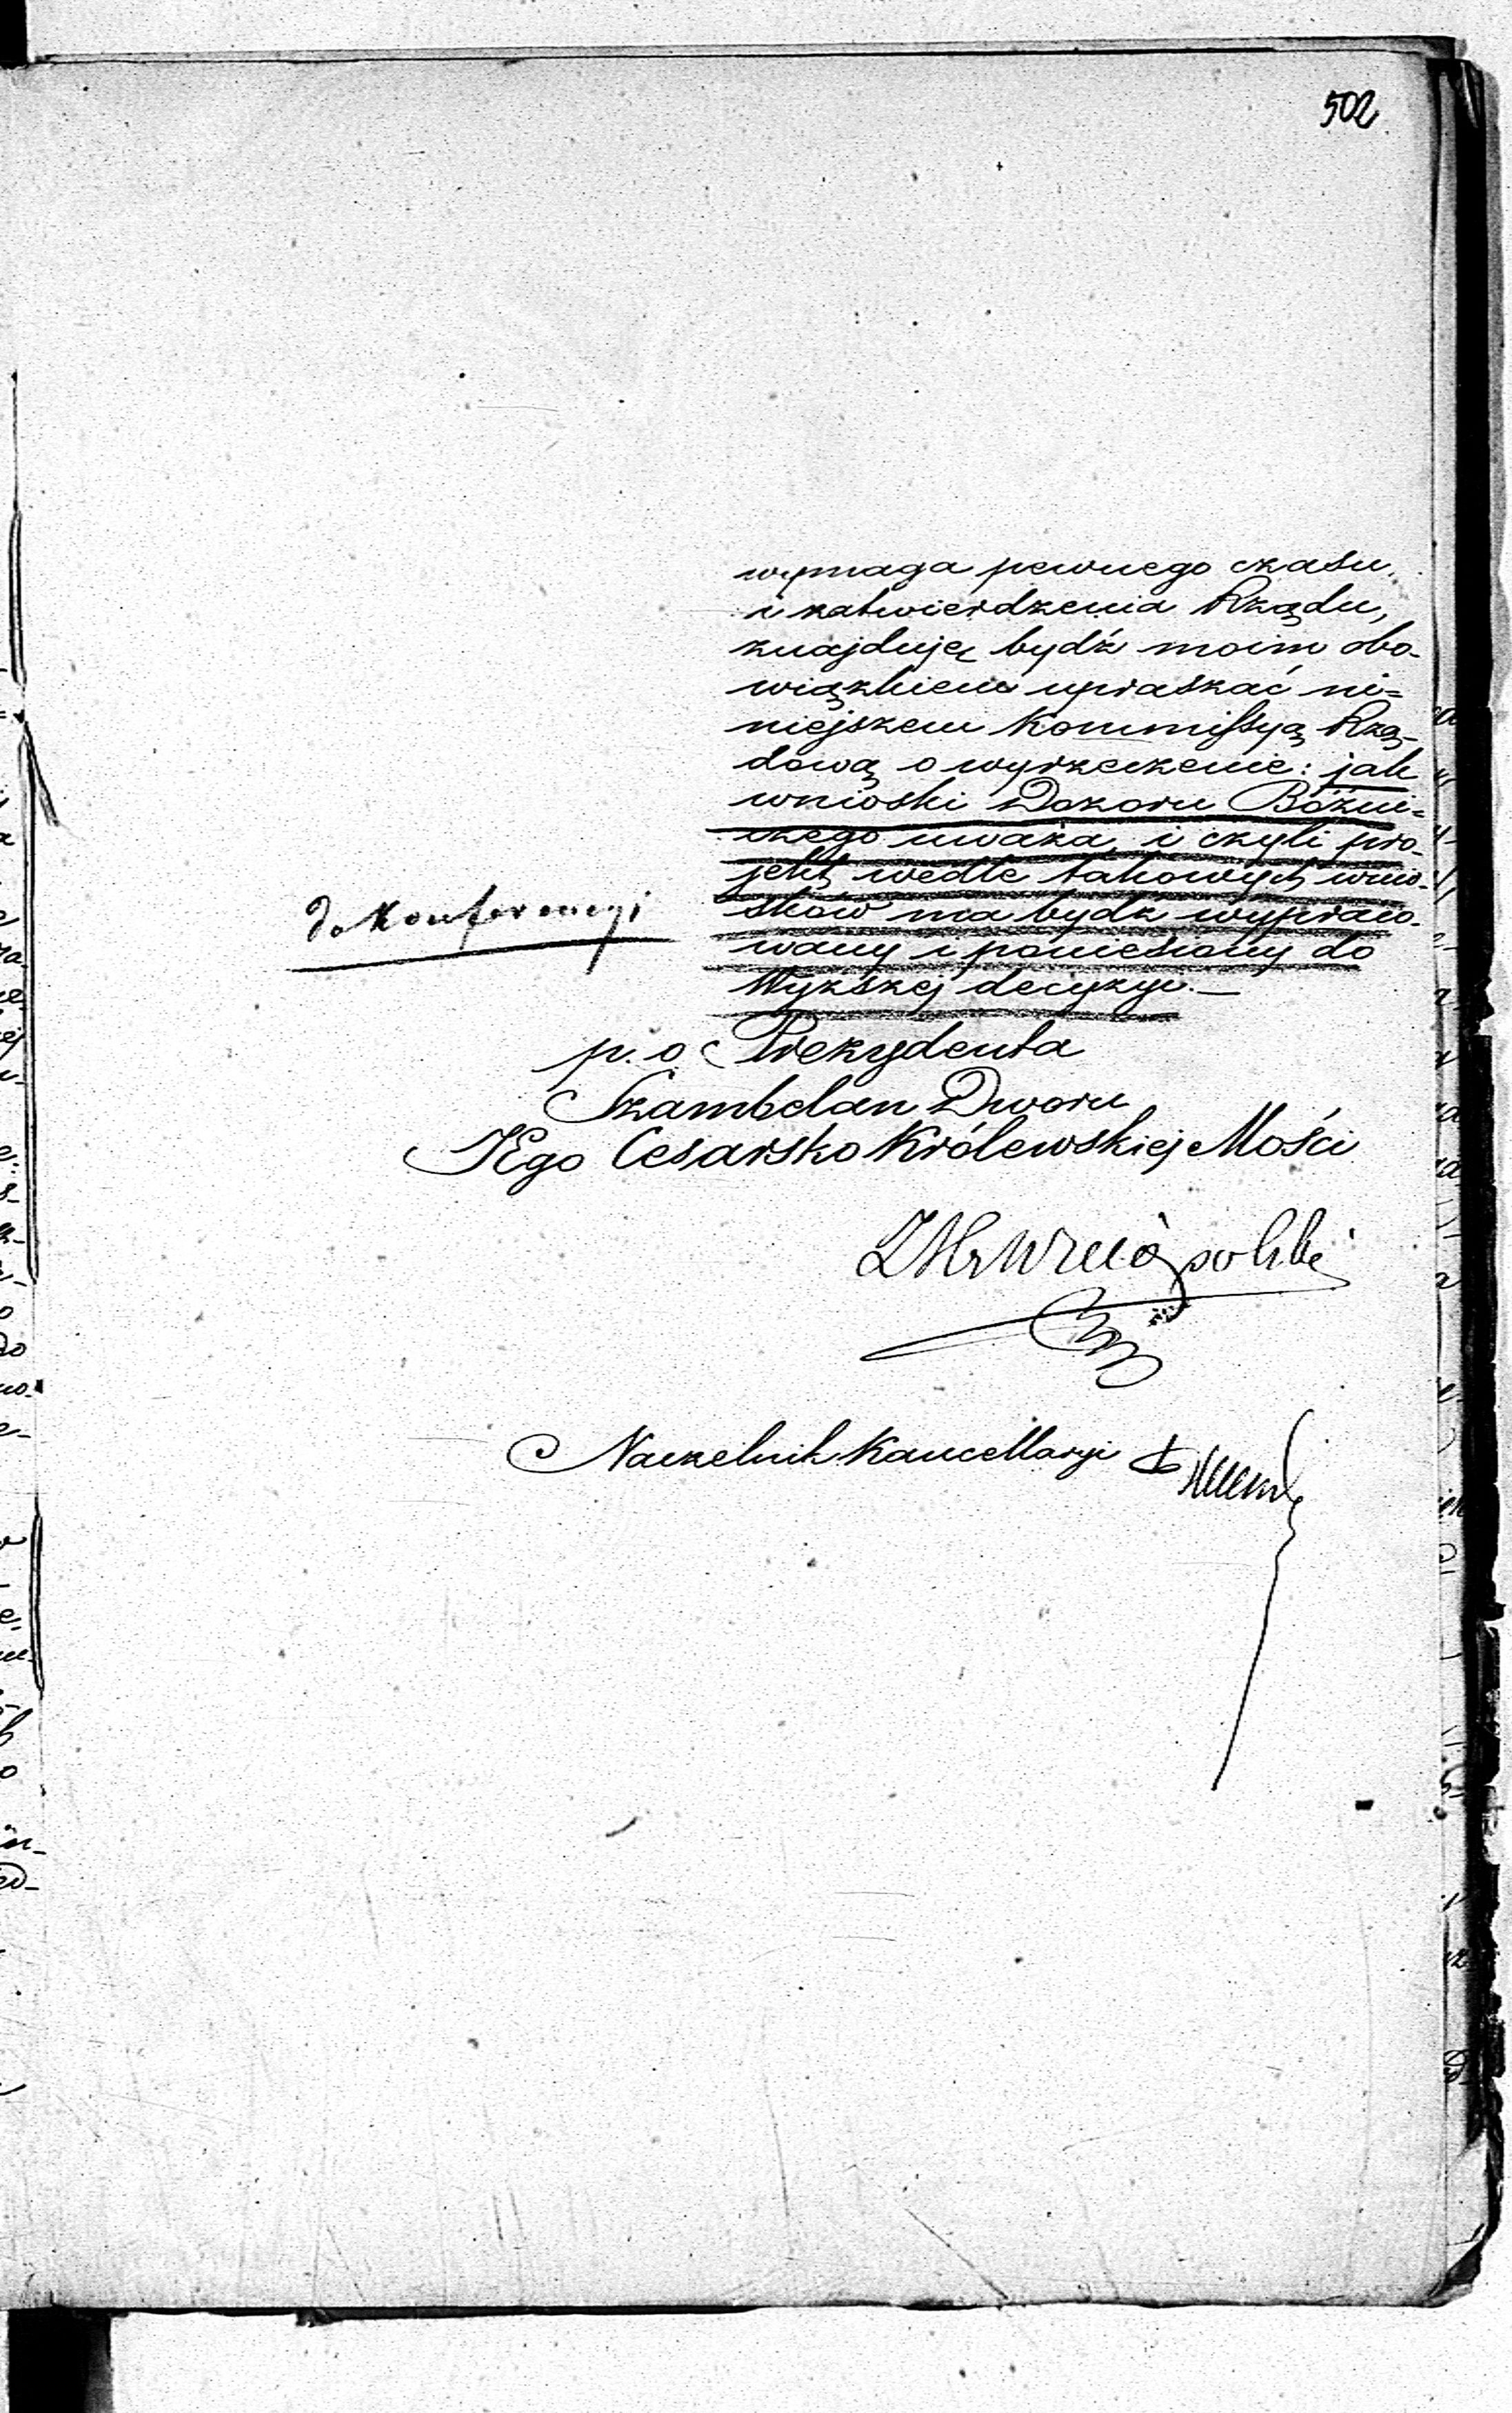 502
wymaga pewnego czasu
i zatwierdzenia Rządu,
znajduję bydź moim obo-
wiązkiem upraszać ni=
niejszem Kommissyą Rzą-
dową o wyrzeczenie: jak
wnioski Dozoru Bóżni=
czego uważa, i czyli pro-
jekt wedle takowych wnio-
sków ma bydź wypraco-
wany i poniesiony do
Wyższej decyzyi.—
do Konferencyi
p. o. Prezydenta
Szambelan Dworu
JEgo Cesarsko Królewskiej Mości
Z Hr Wielopolski
Naczelnik Kancellaryi